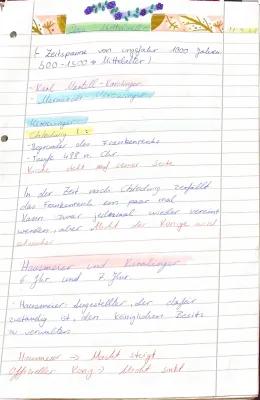 Das Mittelalter
(- Zeitspanne von ungefähr 1000 Jahren
500-1500 → Mittelalter)
- Karl Martell - Karolinger
- Merowinger
Merowinger:
Chlodwig I.:
- Begründer des Frankenreichs
- Taufe 498 n. Chr.
Kirche steht auf seiner Seite
In der Zeit nach Chlodwig zerfällt
das Frankenreich ein paar mal
Kann zwar jedesmal wieder vereint
werden, aber Macht der Könige wird
schwächer
Hausmeier und Karolinger
6. Jhr. und 7. Jhr.
- Hausmeier: Angestellter, der dafür
zuständig ist, den königlichen Besitz
zu verwalten
Hausmeier → Macht steigt
Offizieller König → Macht sinkt